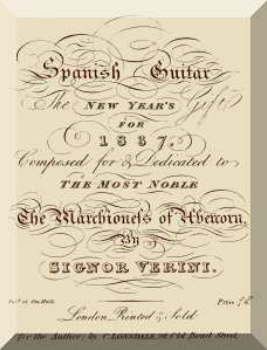 Spanish Guitar
The NEW YEAR'S Gift
FOR
1837.
Composed for & Dedicated to
THE MOST NOBLE
The Marchioness of Abercorn,
By
SIGNOR VERINI.
Price
London, Printed & Sold
For the Author, by C. LONSDALE, 26 Old Bond Street.